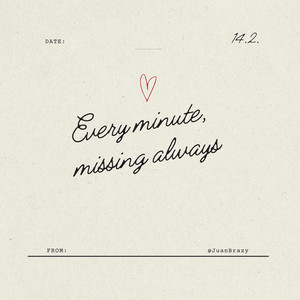 DATE: 14.2.
Every minute,
missing always
FROM: @JuanBrazy